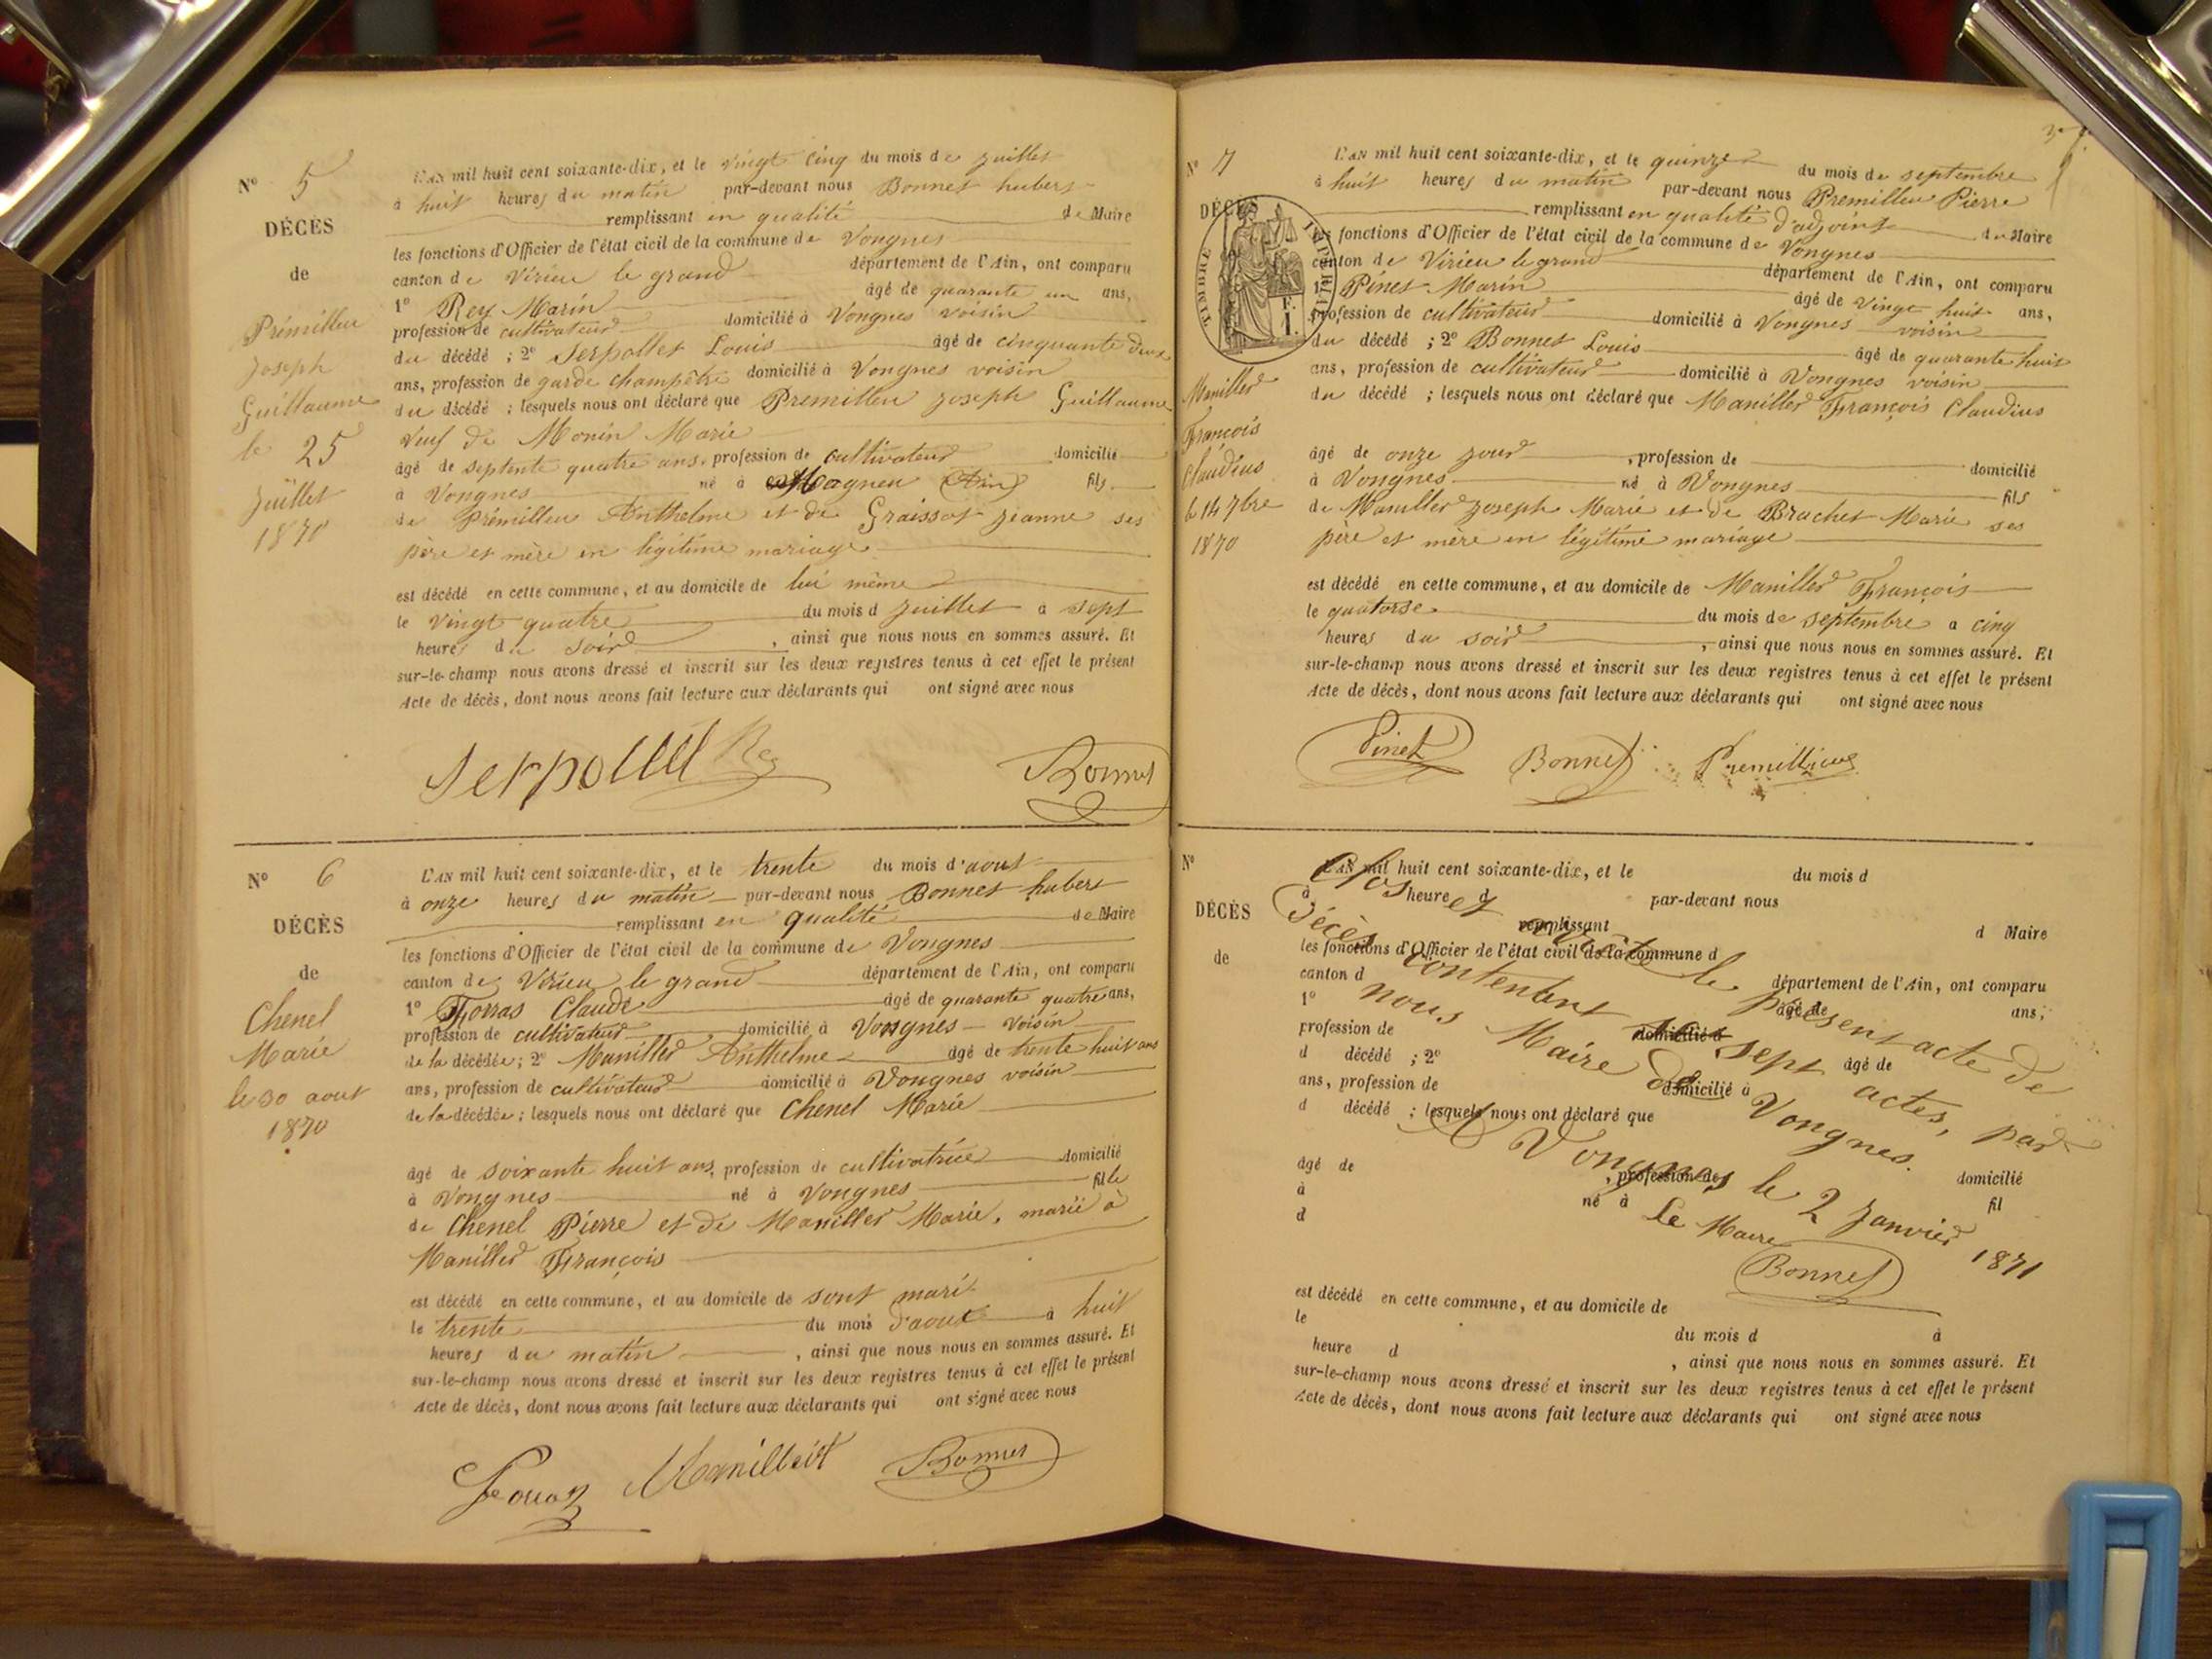 N° 5
DÉCÈS
de
Prémilleu
Joseph
Guillaume
le 25
Juillet
1870
L'AN mil huit cent soixante-dix, et le vingt cinq du mois de juillet
à huit heures du matin par-devant nous Bonnet hubert
remplissant en qualité de Maire
les fonctions d'Officier de l'état civil de la commune de Vongnes
canton de Virieu le grand département de l'Ain, ont comparu
1° Rey Marin âgé de quarante un ans,
profession de cultivateur domicilié à Vongnes voisin
du décédé ; 2° Serpollet Louis âgé de cinquante deux
ans, profession de garde champêtre domicilié à Vongnes voisin
du décédé ; lesquels nous ont déclaré que Premilleu joseph Guillaume
veuf de Monin Marie
âgé de septente quatre ans, profession de cultivateur domicilié
à Vongnes né à Magneu (Ain) fils
de Prémilleu Anthelme et de Graissot jeanne ses
père et mère en légitime mariage
est décédé en cette commune, et au domicile de lui même
le vingt quatre du mois d juillet à sept
heures du soir , ainsi que nous nous en sommes assuré. Et
sur-le-champ nous avons dressé et inscrit sur les deux registres tenus à cet effet le présent
Acte de décès, dont nous avons fait lecture aux déclarants qui ont signé avec nous
Serpollet Rey Bonnet
N° 6
DÉCÈS
de
Chenel
Marie
le 30 aout
1870
L'AN mil huit cent soixante-dix, et le trente du mois d'aout
à onze heures du matin par-devant nous Bonnet hubert
remplissant en qualité de Maire
les fonctions d'Officier de l'état civil de la commune de Vongnes
canton de Virieu le grand département de l'Ain, ont comparu
1° Forras Claude âgé de quarante quatre ans,
profession de cultivateur domicilié à Vongnes voisin
de la décédée ; 2° Manillier Anthelme âgé de trente huit ans
ans, profession de cultivateur domicilié à Vongnes voisin
de la décédée ; lesquels nous ont déclaré que Chenel Marie
âgé de soixante huit ans, profession de cultivatrice domicilié
à Vongnes né à Vongnes fille
de Chenel Pierre et de Manillier Marie, marié à
Manillier François
est décédé en cette commune, et au domicile de sont mari
le trente du mois d'aout à huit
heures du matin , ainsi que nous nous en sommes assuré. Et
sur-le-champ nous avons dressé et inscrit sur les deux registres tenus à cet effet le présent
Acte de décès, dont nous avons fait lecture aux déclarants qui ont signé avec nous
Bonnet
N° 7
DÉCÈS
TIMBRE IMPÉRIAL
F.
1.
Manillier
François
Claudius
le 14 7bre
1870
L'AN mil huit cent soixante-dix, et le quinze du mois de septembre
à huit heures du matin par-devant nous Premilleu Pierre
remplissant en qualité d'adjoint du Maire
les fonctions d'Officier de l'état civil de la commune de Vongnes
canton de Virieu le grand département de l'Ain, ont comparu
1° Pinet Marin âgé de vingt huit ans,
profession de cultivateur domicilié à Vongnes voisin
du décédé ; 2° Bonnet Louis âgé de quarante huit
ans, profession de cultivateur domicilié à Vongnes voisin
du décédé ; lesquels nous ont déclaré que Manillier François Claudius
âgé de onze jour , profession de domicilié
à Vongnes né à Vongnes fils
de Manillier joseph Marie et de Brachet Marie ses
père et mère en légitime mariage
est décédé en cette commune, et au domicile de Manillier François
le quatorse du mois de septembre à cinq
heures du soir , ainsi que nous nous en sommes assuré. Et
sur-le-champ nous avons dressé et inscrit sur les deux registres tenus à cet effet le présent
Acte de décès, dont nous avons fait lecture aux déclarants qui ont signé avec nous
Pinet Bonnet Premillieu
N°
DÉCÈS
de
L'AN mil huit cent soixante-dix, et le du mois d
à heure d par-devant nous
remplissant d Maire
les fonctions d'Officier de l'état civil de la commune d
canton d département de l'Ain, ont comparu
1° âgé de ans,
profession de domicilié à
d décédé ; 2° âgé de
ans, profession de domicilié à
d décédé ; lesquels nous ont déclaré que
âgé de , profession de domicilié
à né à fil
d
est décédé en cette commune, et au domicile de
le du mois d à
heure d , ainsi que nous nous en sommes assuré. Et
sur-le-champ nous avons dressé et inscrit sur les deux registres tenus à cet effet le présent
Acte de décès, dont nous avons fait lecture aux déclarants qui ont signé avec nous
Clos et arrêté le présent acte de
décès contentent sept actes, par
nous Maire de Vongnes.
A Vongnes le 2 Janvier 1871
Le Maire
Bonnet